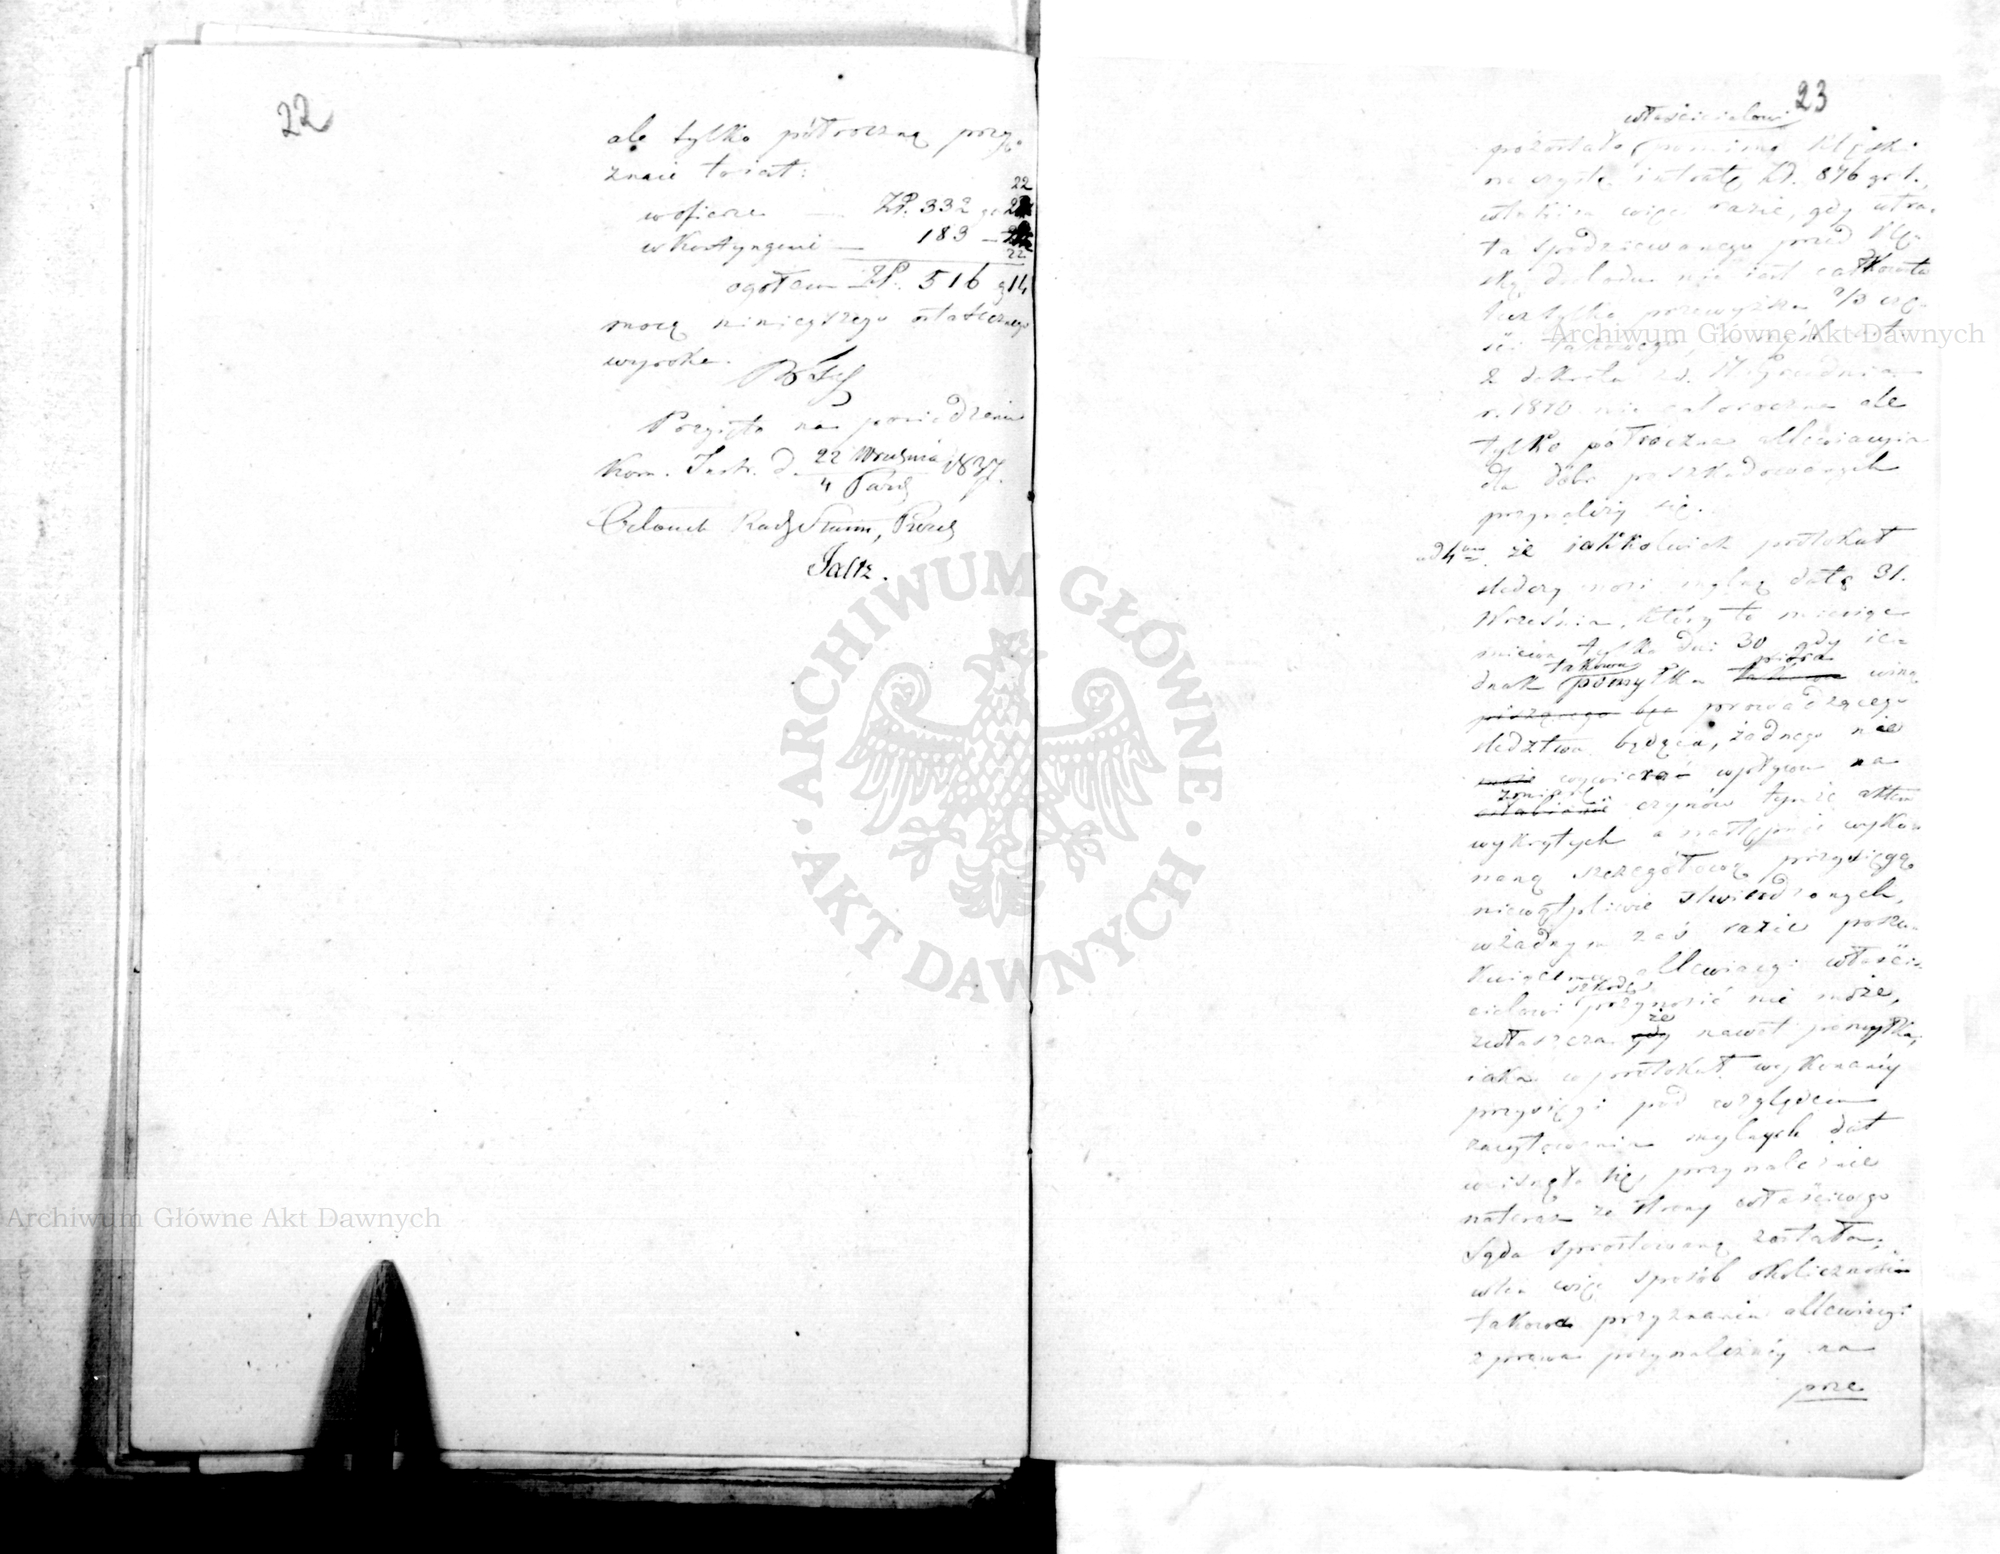 22
ale tylko półroczną przy
znaie to iest:
w ofierze — ZP. 332 gr 22
w Kontyngensie — 183 — 22
ogółem ZP. 516 g 14
mocą ninieyszego ostatecznego
wyroku.
Przyięto na posiedzeniu
Kom. Instr. d. 22 Września 1837.
Członek Rady Stanu, Prezes
23
właścicielowi
pozostało, pomimo klęski
czystey intraty ZP. 846 gr 1.,
w takim więc razie, gdy utra-
ta spodziewanego przed klę-
ską dochodu nie iest całkowita
lecz tylko przewyższa 2/3 czę-
ści takowego,
2 dekretu z d. Grudnia
r. 1810. nie całoroczna ale
tylko półroczna allewiacyia
dla dóbr poszkodowanych
przynależy się.
ad 4um że iakkolwiek protokuł
śledczy nosi mylną datę 31.
Września, który to miesiąc
miewa tylko dni 30 gdy ie-
dnak takowa pomyłka winą
piszącego prowadzącego
śledztwo będąca, żadnego nie
wywiera wpływu na
zmianę czynów tymże aktem
wykrytych a następnie wyko-
naną szczegółową przysięgą
niewątpliwie stwierdzonych,
w żadnym zaś razie poszu-
kuiącemu allewiacyi właści-
cielowi szkody przynosić nie może,
zwłaszcza że gdy nawet pomyłka,
iaka w protokuł wykonaney
przysięgi pod względem
zacytowania mylnych dat
wcisnęła się, przynależnie
nateraz ze strony właściwego
Sądu sprostowaną została;
w ten więc sposób okoliczności
takowe przyznaniu allewiacyi
z prawa przynależney na
prze
Archiwum Główne Akt Dawnych
Archiwum Główne Akt Dawnych
ARCHIWUM GŁÓWNE
AKT DAWNYCH